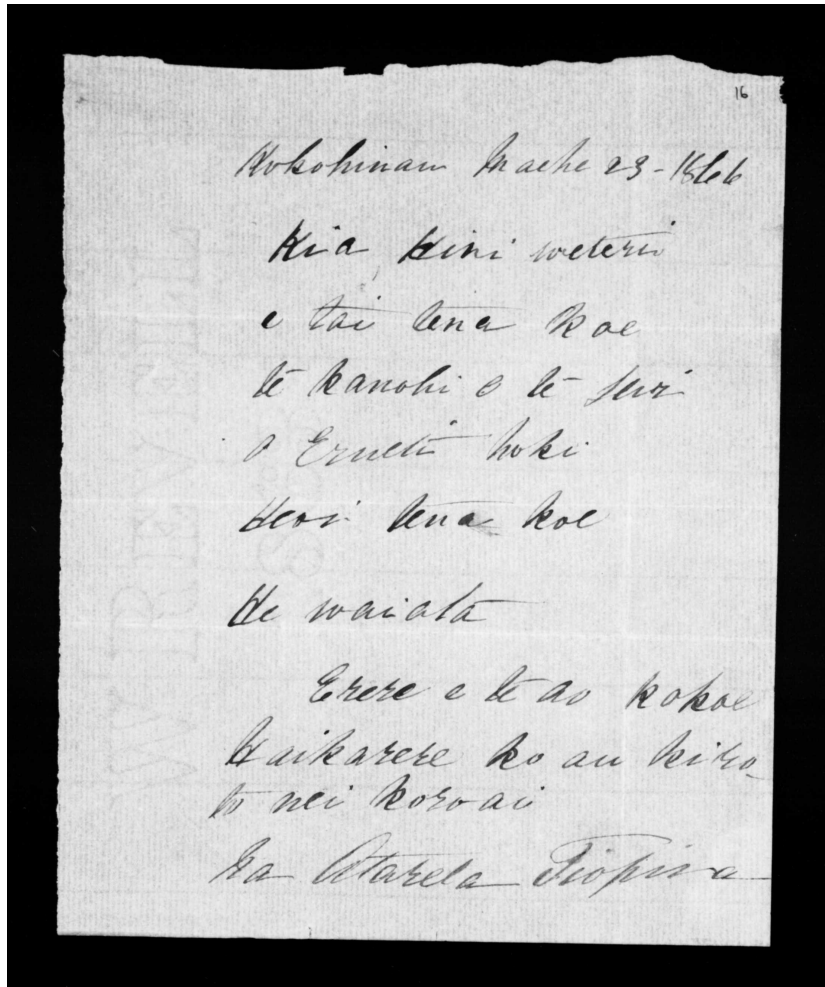 16
Kokohinau Maehe 23 - 1866
Kia Hini weteriu
e tai tena koe
te kanohi e te
o Erueti hoki
Heoi tena koe
He waiata
Erere e te ao kokoe
Haikarere ko au kiro-
to nei koroai
Na Atareta Tiopira